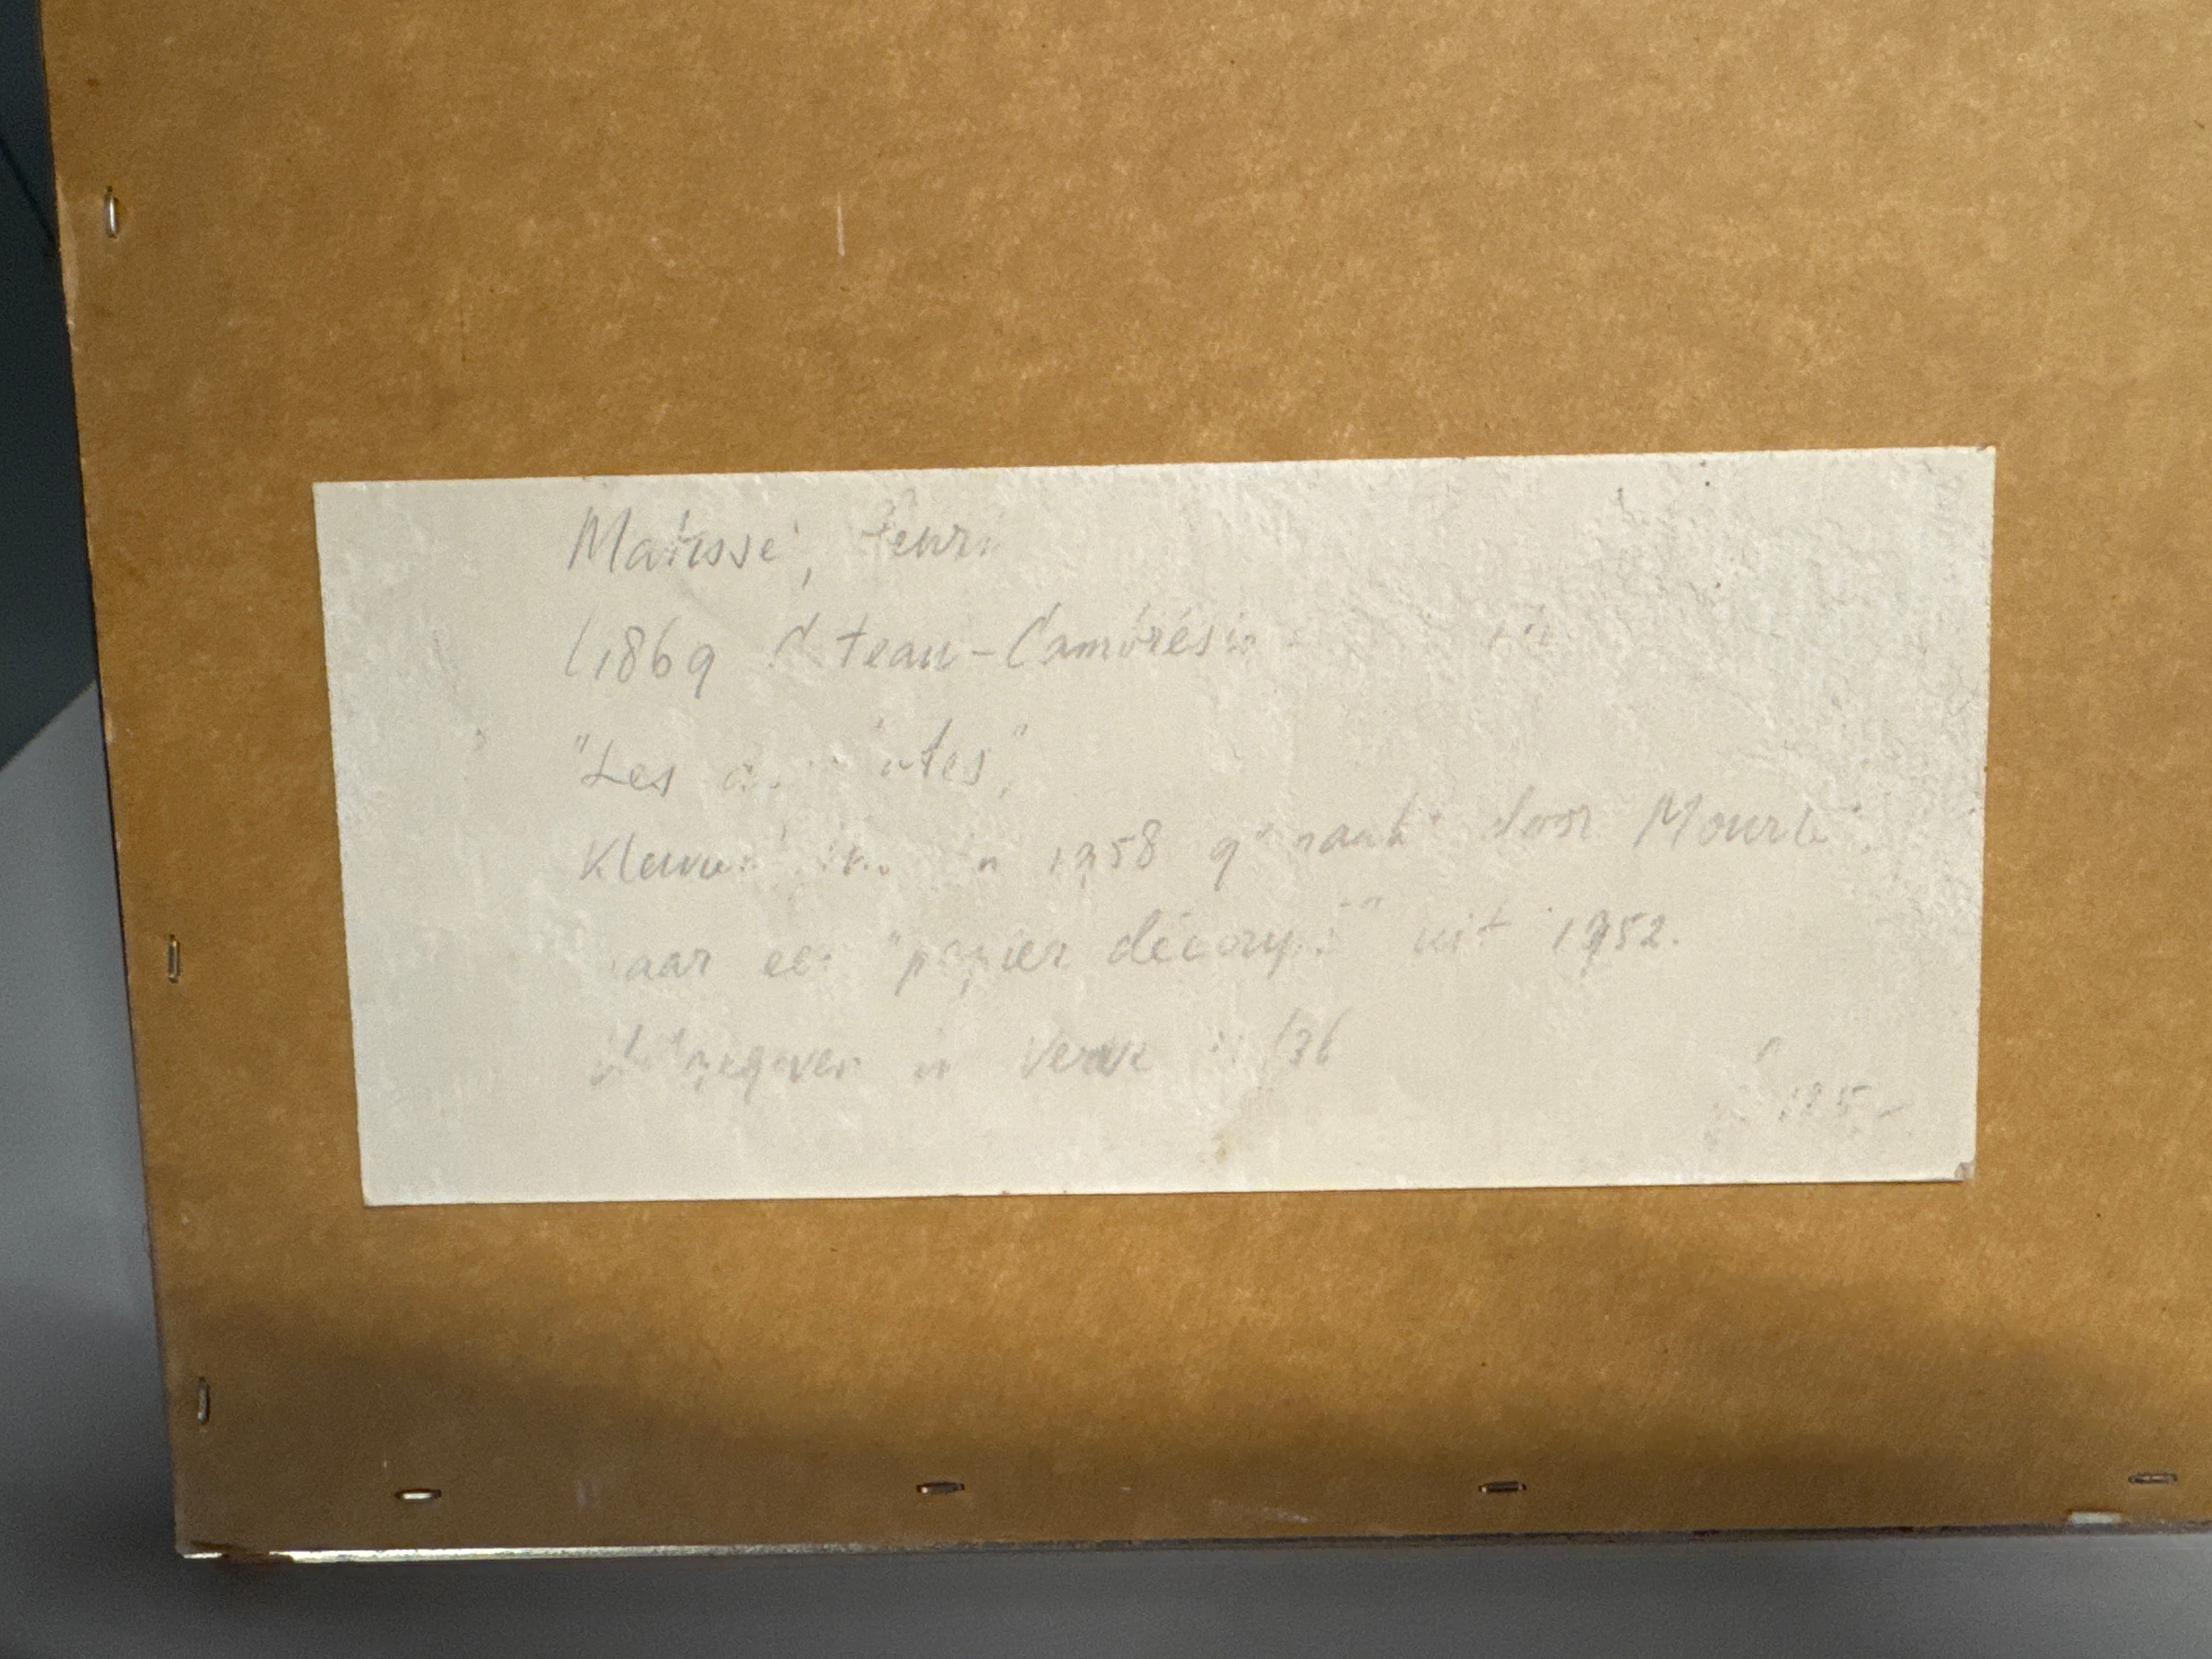 Matisse, Henri
(1869 Cateau-Cambrésis -
"Les
in 1958 gemaakt door Mourlot
naar een "papier découpé" uit 1952.
Uitgegeven in Verve /36
125,-